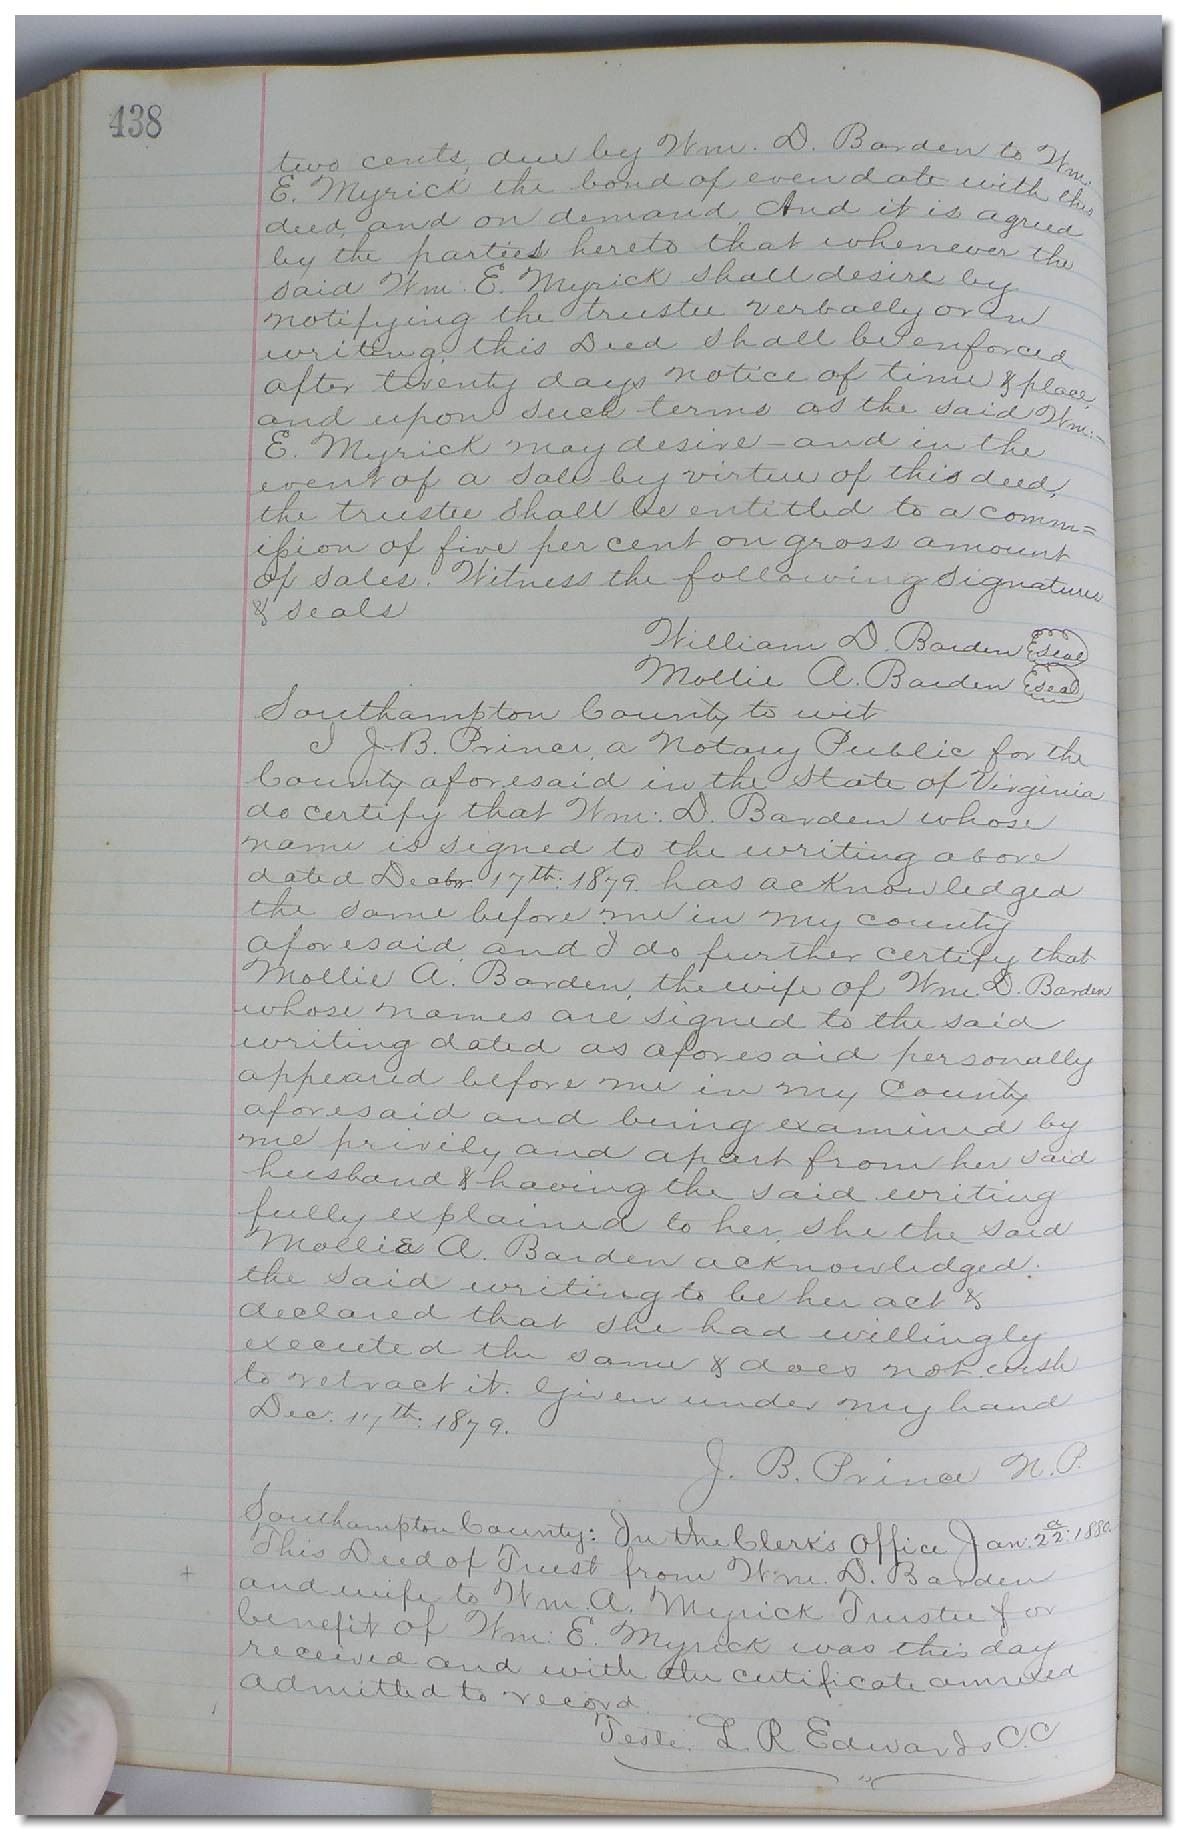 438
two cents, due by Wm. D. Barden to Wm.
E. Myrick the bond of even date with this
deed, and on demand. And it is agreed
by the parties hereto that whenever the
said Wm. E. Myrick shall desire by
notifying the trustee verbally or in
writing, this Deed shall be enforced
after twenty days notice of time & place,
and upon such terms as the said Wm.
E. Myrick may desire - and in the
event of a sale by virtue of this deed,
the trustee shall be entitled to a comm=
ission of five per cent on gross amount
of sales. Witness the following signatures
& seals
William D. Barden Seal
Mollie A. Barden Seal
Southampton County to wit
I J. B. Prince, a Notary Public for the
County aforesaid in the State of Virginia
do certify that Wm. D. Barden whose
name is signed to the writing above
dated Decbr 17th. 1879. has acknowledged
the same before me in my county
aforesaid, and I do further certify that
Mollie A. Barden, the wife of Wm. D. Barden
whose names are signed to the said
writing dated as aforesaid personally
appeared before me in my County
aforesaid and being examined by
me privily and apart from her said
husband & having the said writing
fully explained to her, she the said
Mollie A. Barden acknowledged
the said writing to be her act &
declared that she had willingly
executed the same & does not wish
to retract it. Given under my hand
Dec. 17th. 1879.
J. B. Prince N.P.
Southampton County: In the Clerk's Office Jan. 22d: 1880.
This Deed of Trust from Wm. D. Barden
and wife to Wm. A. Myrick Trustee for
benefit of Wm. E. Myrick was this day
received and with the certificate annexed
admitted to record.
Teste. L. R. Edwards C.C